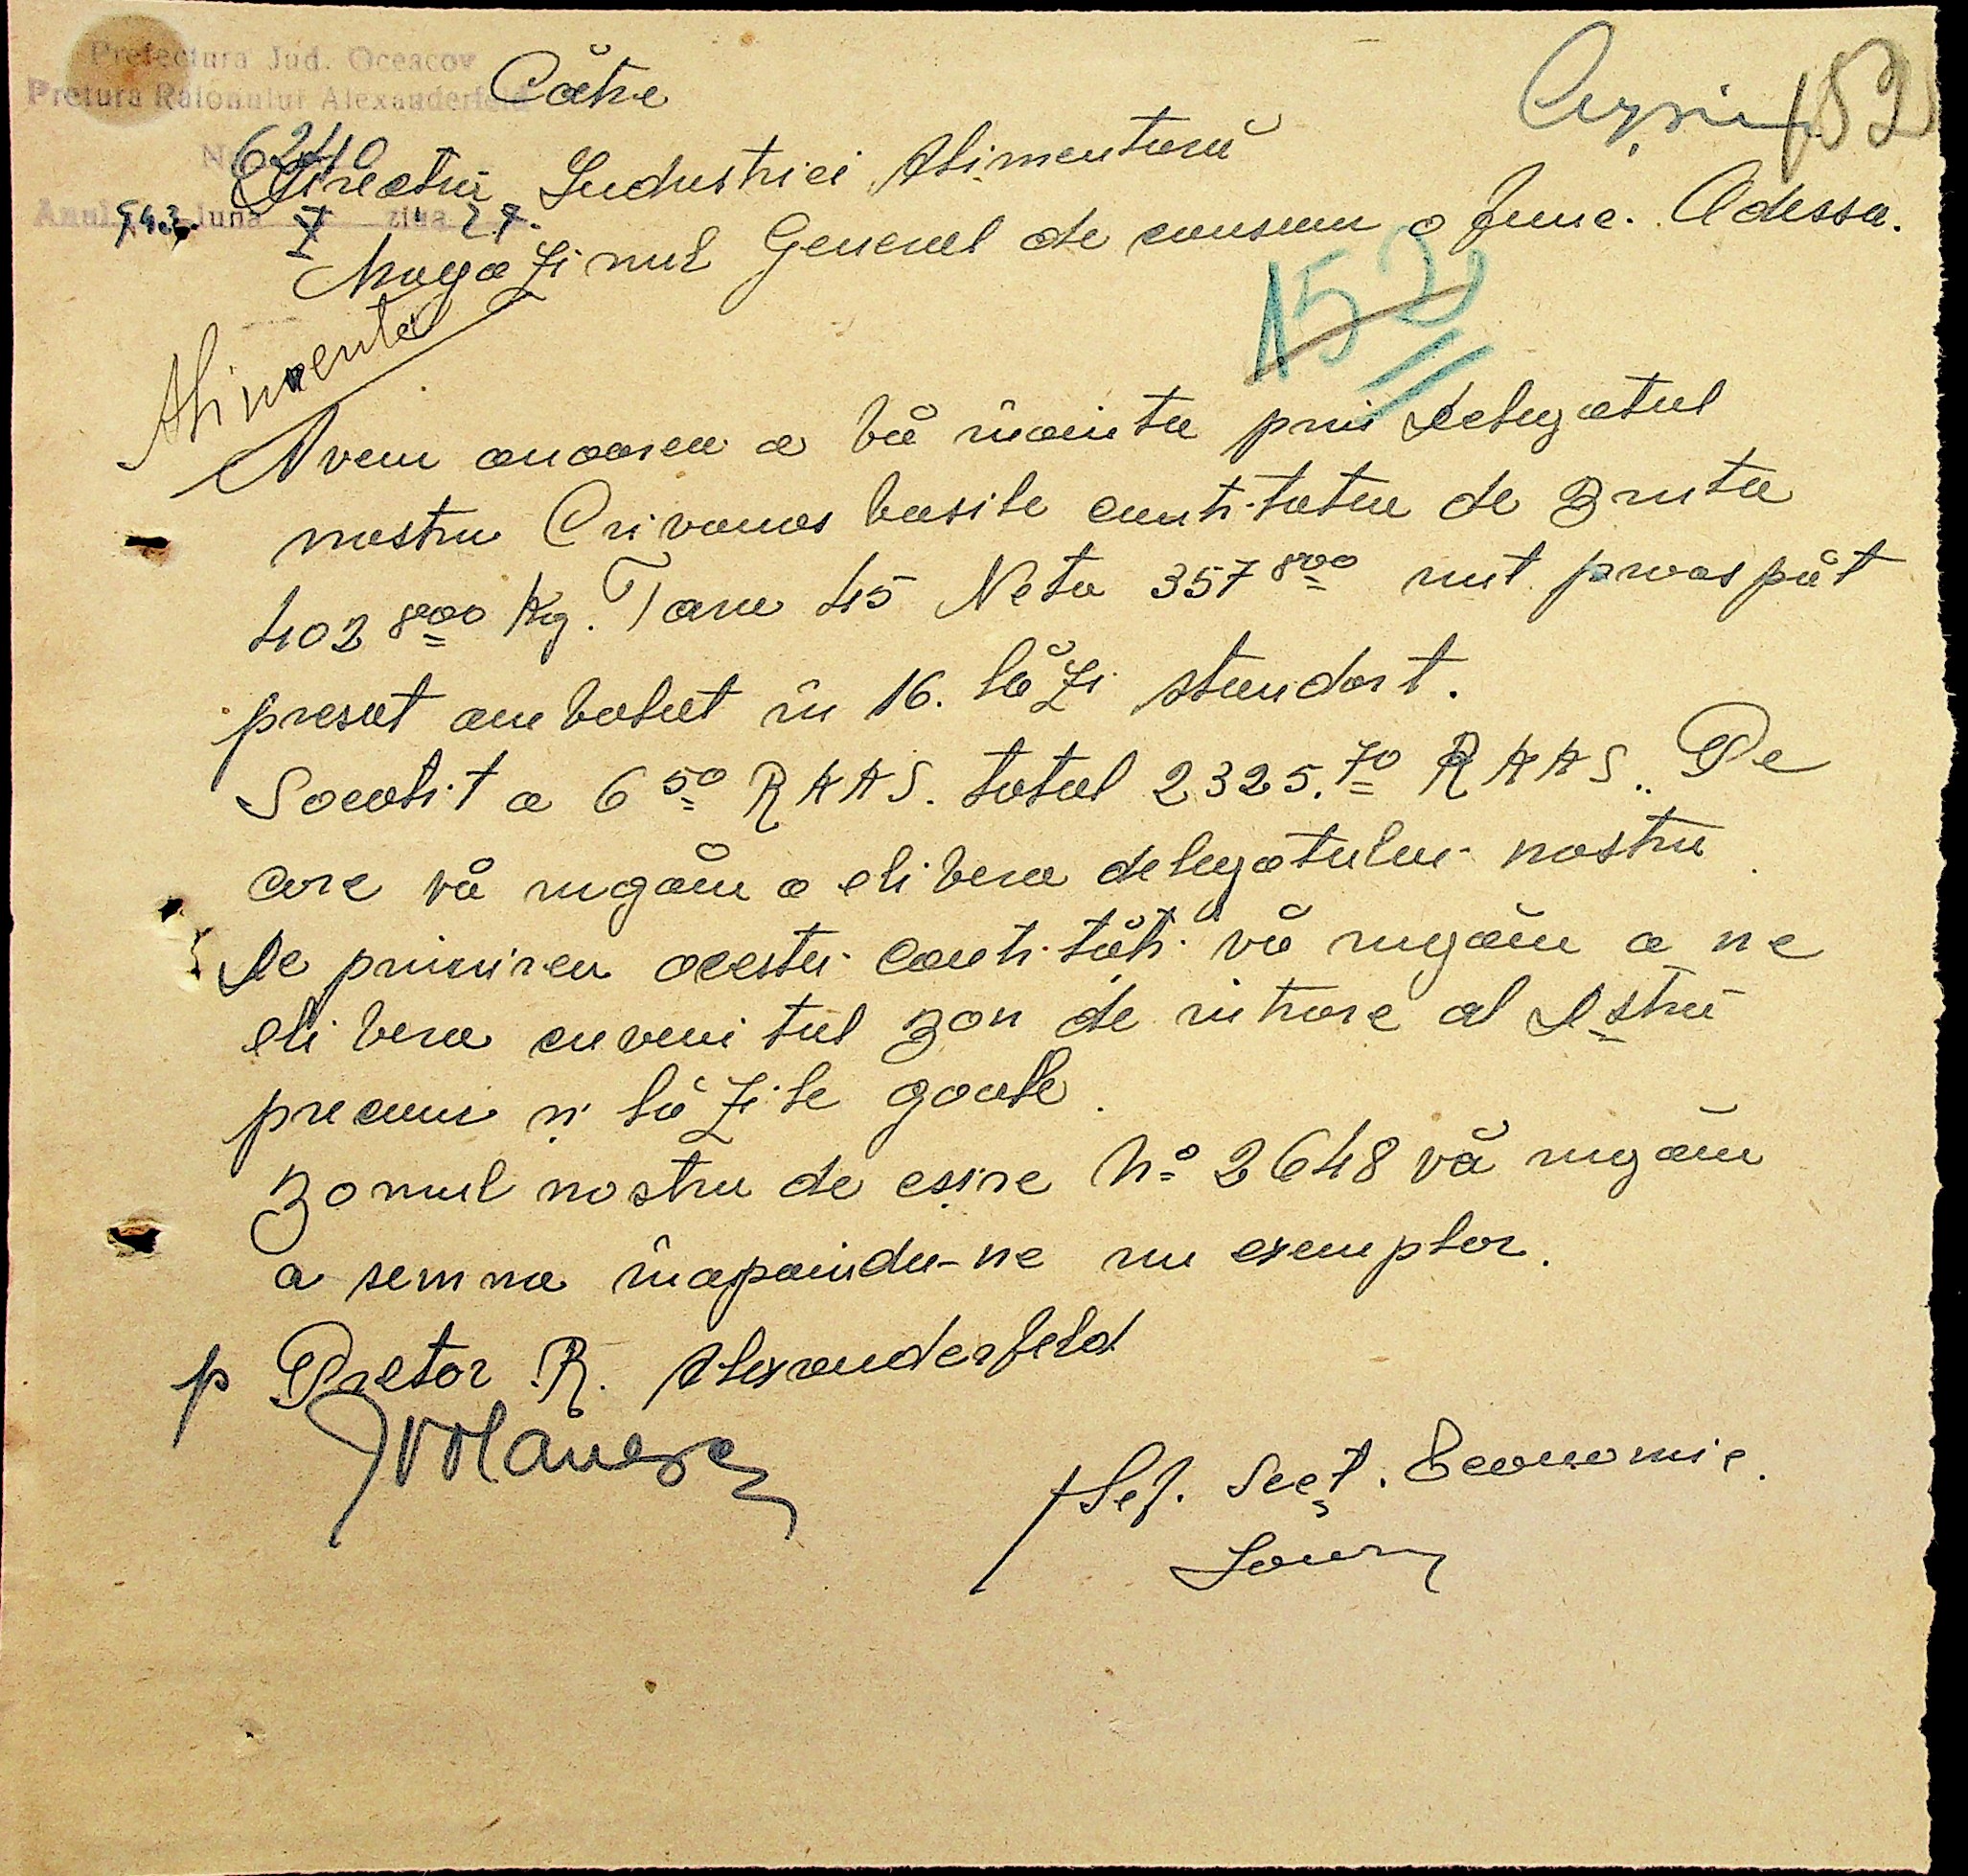 Prefectura Jud. Oceacov
Pretura Raionului Alexanderfeld
No. 6240
Anul 943 luna X ziua 27.
182
Către
Directia Industriei Alimentară
Magazinul General de consum o func. Odessa.
152
Alimente
Avem onoarea a vă înainta prin delegatul
nostru Crivanos Vasile cantitatea de Bruta
402 800 Kg. Tara 45 Neta 357 800 unt proaspăt
presat ambalat în 16. lăzi standart.
Socotit a 6 50 RKKS. total 2325.70 RKKS.. Pe
care vă rugăm a elibera delegatului nostru
De primirea acestei cantităţi vă rugăm a ne
elibera cuvenitul Bon de intrare al Dstră
precum şi lăzile goale.
Bonul nostru de eşire No 2648 vă rugăm
a semna înapoindu-ne un exemplar.
p Pretor R. Alexanderfeld
Şef. Secţ. Economic.